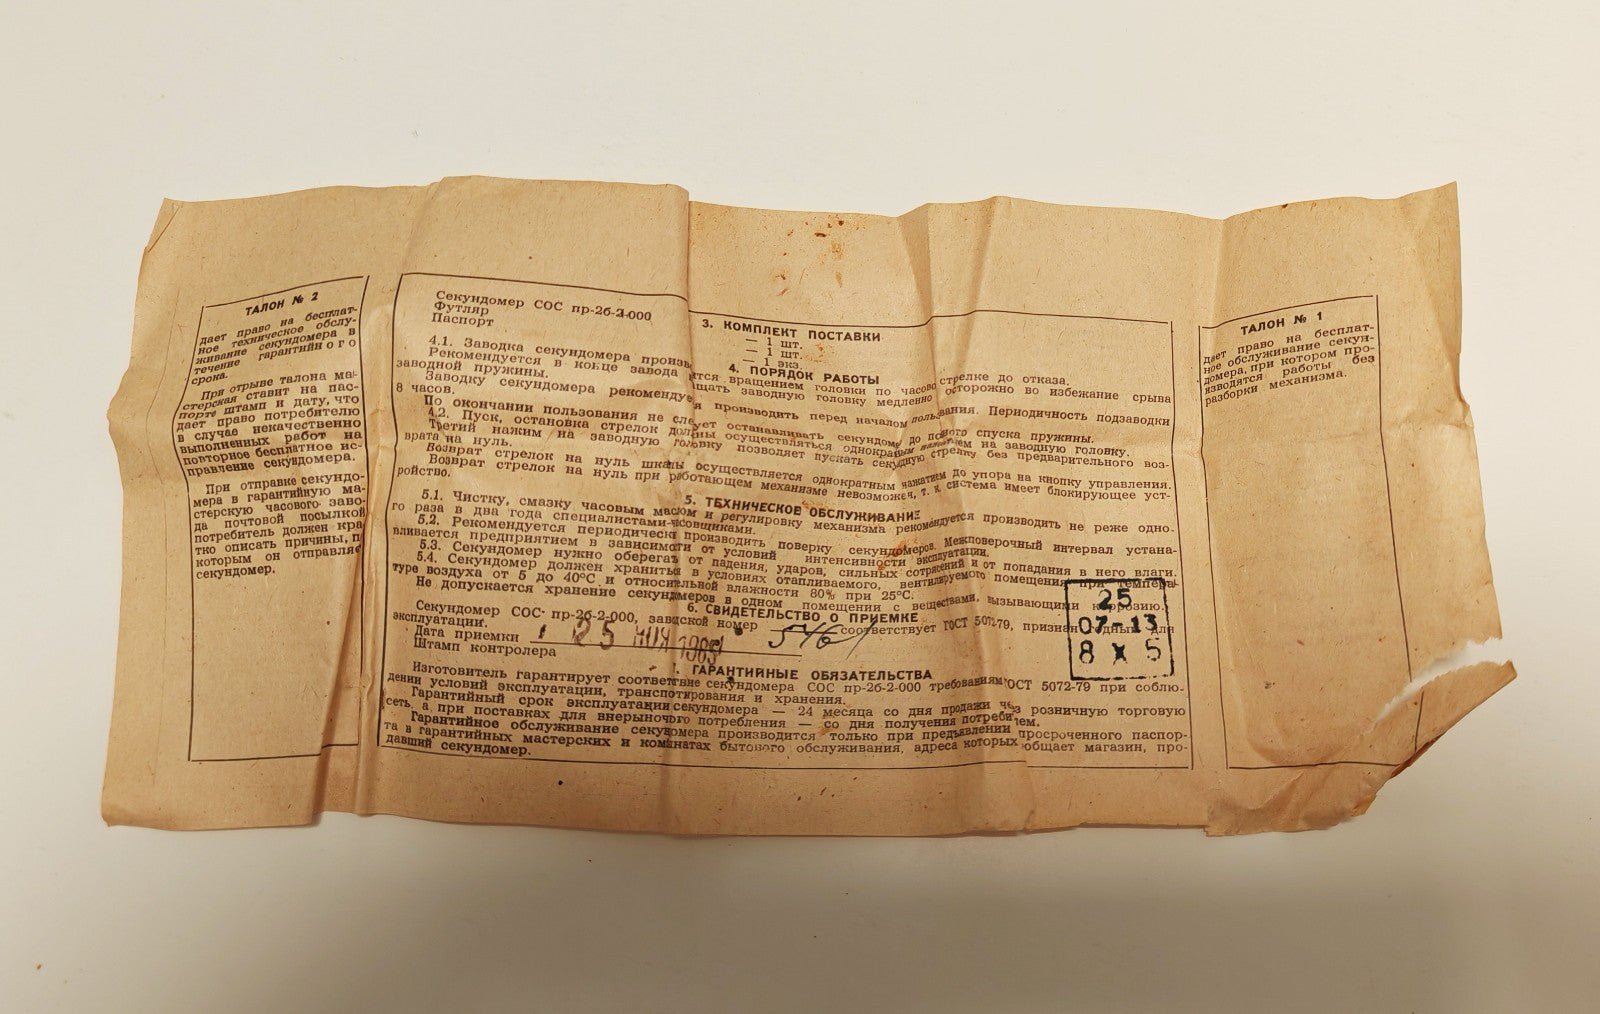 ТАЛОН № 2
дает право на бесплат-
ное техническое обслу-
живание секундомера в
течение гарантийного
срока.
При отрыве талона ма-
стерская ставит на пас-
порте штамп и дату, что
дает право потребителю
в случае некачественно
выполненных работ на
повторное бесплатное ис-
правление секундомера.
При отправке секундо-
мера в гарантийную ма-
стерскую часового заво-
да почтовой посылкой
потребитель должен кра
тко описать причины, п
которым он отправляе
секундомер.
Секундомер СОС пр-2б-2-000
Футляр
Паспорт
3. КОМПЛЕКТ ПОСТАВКИ
— 1 шт.
— 1 шт.
— 1 экз.
4. ПОРЯДОК РАБОТЫ
4.1. Заводка секундомера произв тся вращением головки по часово стрелке до отказа.
Рекомендуется в конце завода щать заводную головку медленно осторожно во избежание срыва
заводной пружины.
Заводку секундомера рекомендуе я производить перед началом пользования. Периодичность подзаводки
8 часов.
По окончании пользования не следует останавливать секундомер до полного спуска пружины.
4.2. Пуск, остановка стрелок должны осуществляться однократным нажатием на заводную головку.
Третий нажим на заводную головку позволяет пускать секундную стрелку без предварительного воз-
врата на нуль.
Возврат стрелок на нуль шкалы осуществляется однократным нажатием до упора на кнопку управления.
Возврат стрелок на нуль при работающем механизме невозможен, т. к. система имеет блокирующее уст-
ройство.
5. ТЕХНИЧЕСКОЕ ОБСЛУЖИВАНИЕ
5.1. Чистку, смазку часовым маслом и регулировку механизма рекомендуется производить не реже одно-
го раза в два года специалистами-часовщиками.
5.2. Рекомендуется периодически производить поверку секундомеров. Межповерочный интервал устана-
вливается предприятием в зависимости от условий интенсивности эксплуатации.
5.3. Секундомер нужно оберегать от падения, ударов, сильных сотрясений и от попадания в него влаги.
5.4. Секундомер должен храниться в условиях отапливаемого, вентилируемого помещения при темпера
туре воздуха от 5 до 40°С и относительной влажности 80% при 25°С.
Не допускается хранение секундомеров в одном помещении с веществами, вызывающими коррозию.
6. СВИДЕТЕЛЬСТВО О ПРИЕМКЕ
Секундомер СОС пр-2б-2-000, заводской номер соответствует ГОСТ 5072-79, признан годным для
эксплуатации.
Дата приемки 25 НОЯ
Штамп контролера
25
07-13
8 х 5
ГАРАНТИЙНЫЕ ОБЯЗАТЕЛЬСТВА
Изготовитель гарантирует соответствие секундомера СОС пр-2б-2-000 требованиям ГОСТ 5072-79 при соблю-
дении условий эксплуатации, транспортирования и хранения.
Гарантийный срок эксплуатации секундомера — 24 месяца со дня продажи через розничную торговую
сеть, а при поставках для внерыночного потребления — со дня получения потребителем.
Гарантийное обслуживание секундомера производится только при предъявлении просроченного паспор-
та в гарантийных мастерских и комнатах бытового обслуживания, адреса которых общает магазин, про-
давший секундомер.
ТАЛОН № 1
дает право на бесплат-
ное обслуживание секун-
домера, при котором про-
изводятся работы без
разборки механизма.